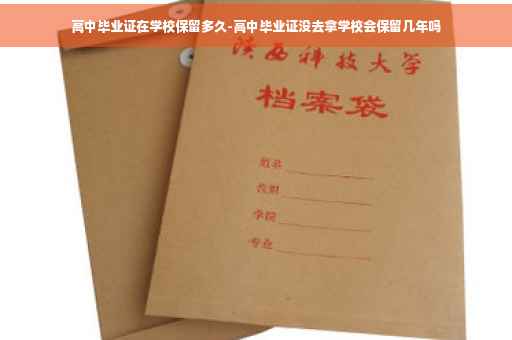 高中毕业证在学校保留多久-高中毕业证没去拿学校会保留几年吗
陕西科技大学
档案袋
姓名
性别
学院
专业